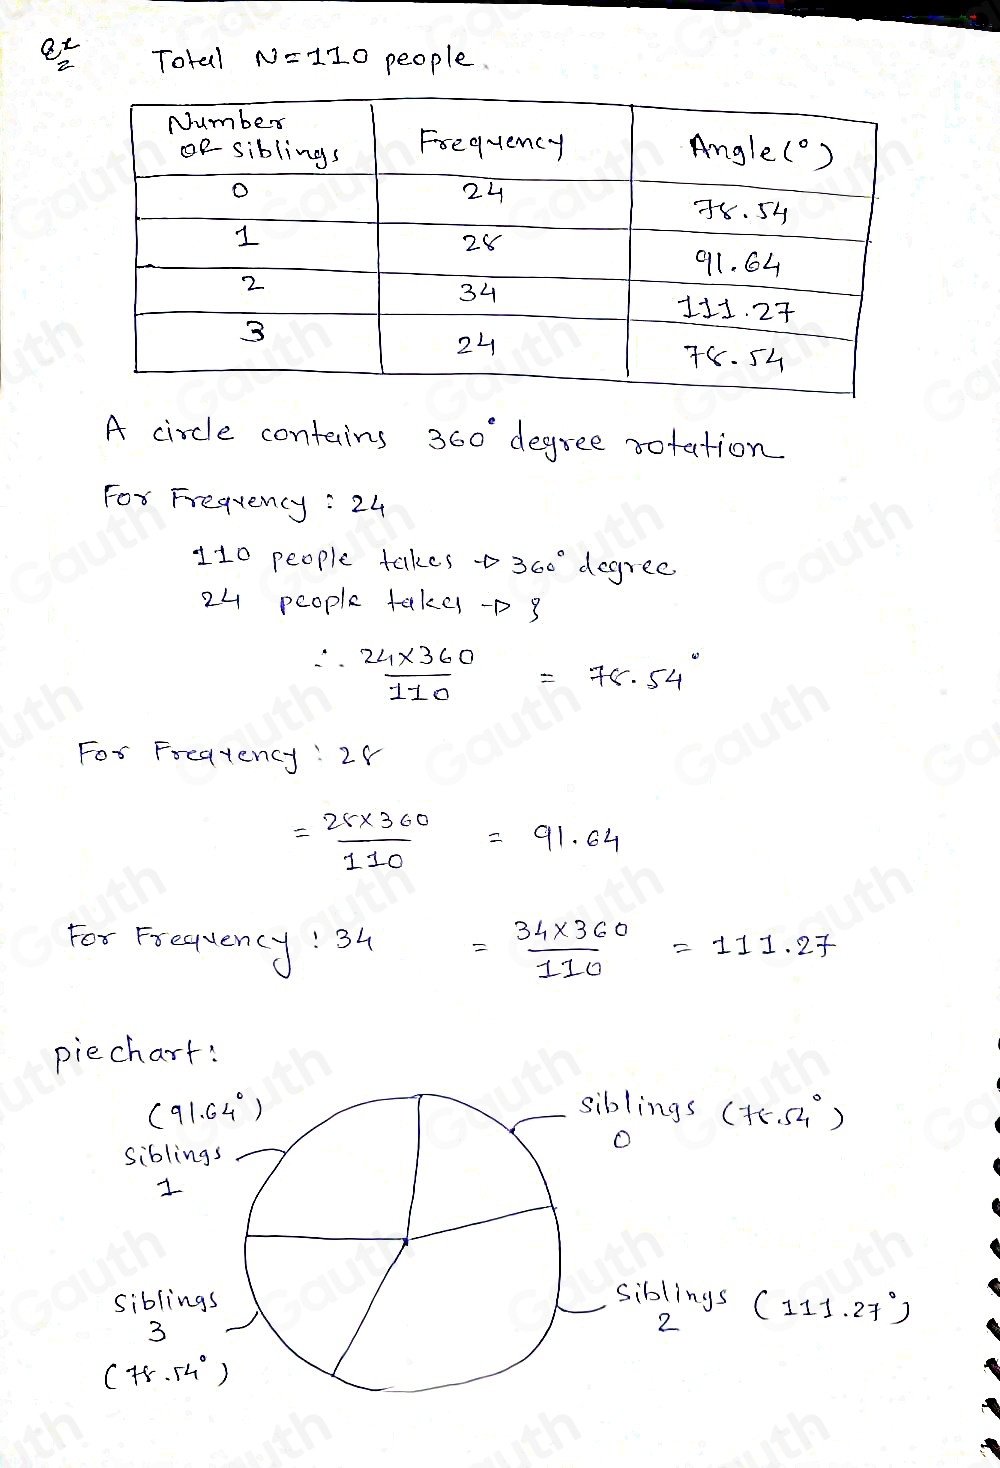 Total N=110 people.
Number of siblings | Frequency | Angle (°)
0 | 24 | 78.54
1 | 28 | 91.64
2 | 34 | 111.27
3 | 24 | 78.54
A circle contains 360° degree rotation
For Frequency : 24
110 people takes → 360° degree
24 people takes → ?
∴ 24×360/110 = 78.54°
For Frequency : 28
= 28×360/110 = 91.64
For Frequency : 34 = 34×360/110 = 111.27
pie chart :
(91.64°)
siblings
1
siblings (78.54°)
0
siblings
3
(78.54°)
siblings (111.27°)
2
Gauth